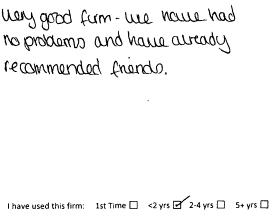 very good firm - we have had
no problems and have already
recommended friends.
I have used this firm: 1st Time ☐ <2 yrs ☑ 2-4 yrs ☐ 5+ yrs ☐